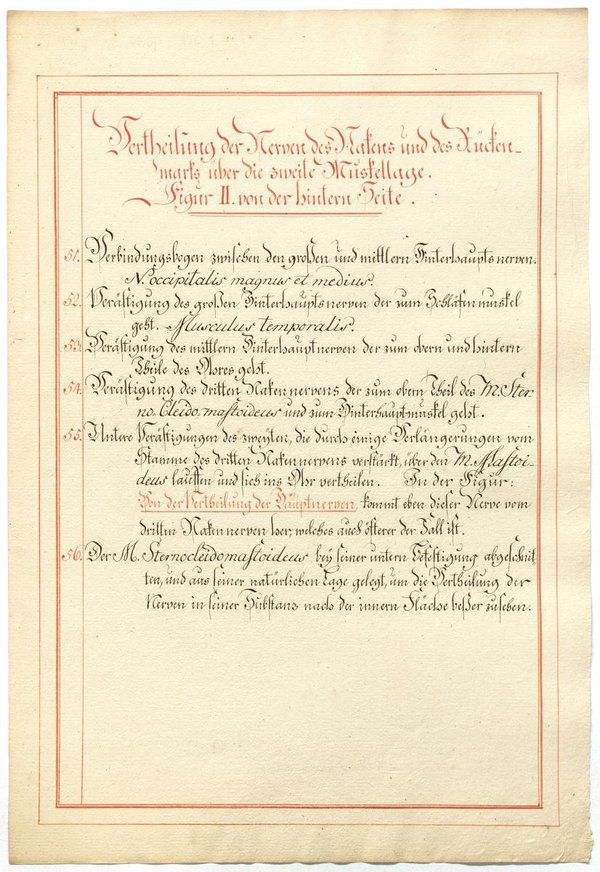 Vertheilung der Nerven des Nakens und des Rücken-
marks über die zweite Muskellage.
Figur II. von der hintern Seite.
51. Verbindungsbogen zwischen den großen und mittlern Hinterhauptsnerven.
N. occipitalis magnus et medius.
52. Verästigung des großen Hinterhauptsnerven der zum Schlafenmuskel
geht. Musculus temporalis.
53. Verästigung des mittlern Hinterhauptnerven der zum obern und hintern
Theile des Ohres geht.
54. Verästigung des dritten Nakennervens der zum obern Theil des M. Ster-
no, Cleido, mastoideus und zum Hinterhauptmuskel geht.
55. Untere Verästigungen des zweyten, die durch einige Verlängerungen vom
Stamme des dritten Nakennervens verstärkt, über den M. Mastoi-
deus lauffen und sich ins Ohr vertheilen. In der Figur:
Von der Vertheilung der Hautnerven, kommt eben dieser Nerve vom
dritten Nakennerven her, welches auch öfterer der Fall ist.
56. Der M. Sternocleidomastoideus bey seiner untern Befestigung abgeschnit-
ten, und aus seiner natürlichen Lage gelegt, um die Vertheilung der
Nerven in seiner Substanz nach der innern Fläche beßer zu sehen.